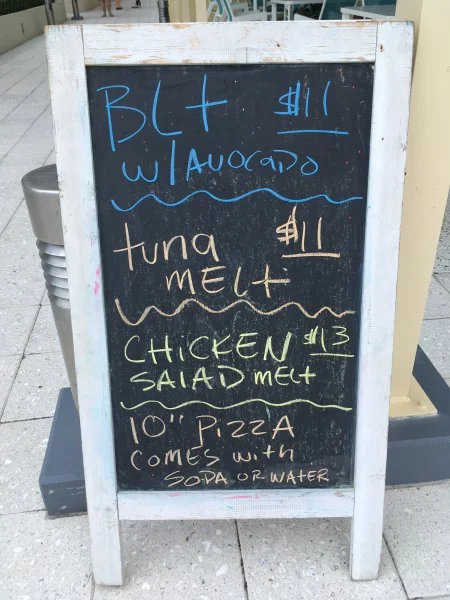 BLt $11
w/AVOCADO
tuna $11
MELt
CHiCKEN $13
SALAD MELt
10" PiZZA
COMES with
SODA OR WATER